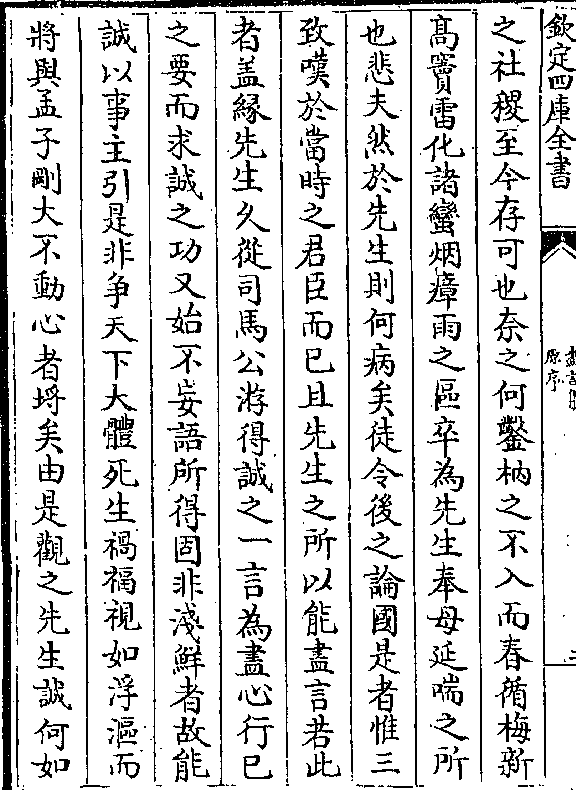 欽定四庫全書
原序
之社稷至今存可也奈之何鑿枘之不入而春循梅新
高竇雷化諸蠻烟瘴雨之區卒為先生奉母延喘之所
也悲夫然於先生則何病矣徒令後之論國是者惟三
致嘆於當時之君臣而已且先生之所以能盡言若此
者盖緣先生久從司馬公游得誠之一言為盡心行已
之要而求誠之功又始不妄語所得固非淺鮮者故能
誠以事主引是非争天下大體死生禍福視如浮漚而
將與孟子剛大不動心者埓矣由是觀之先生誠何如